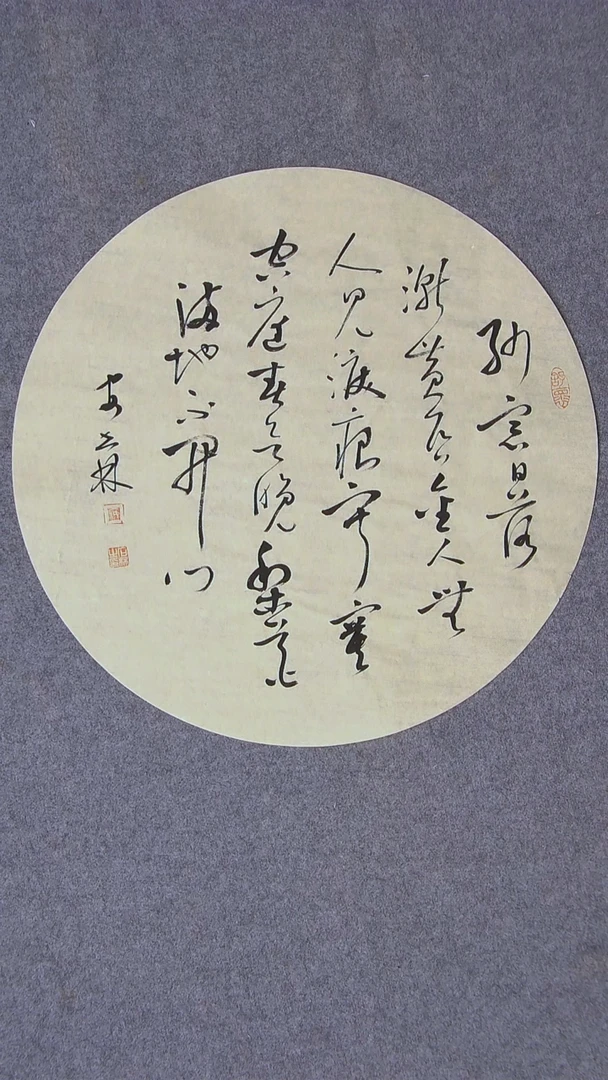 纱窗日落
漸黄昏金人無
人見淚痕寂寞
空庭春欲晚梨花
滿地不開門